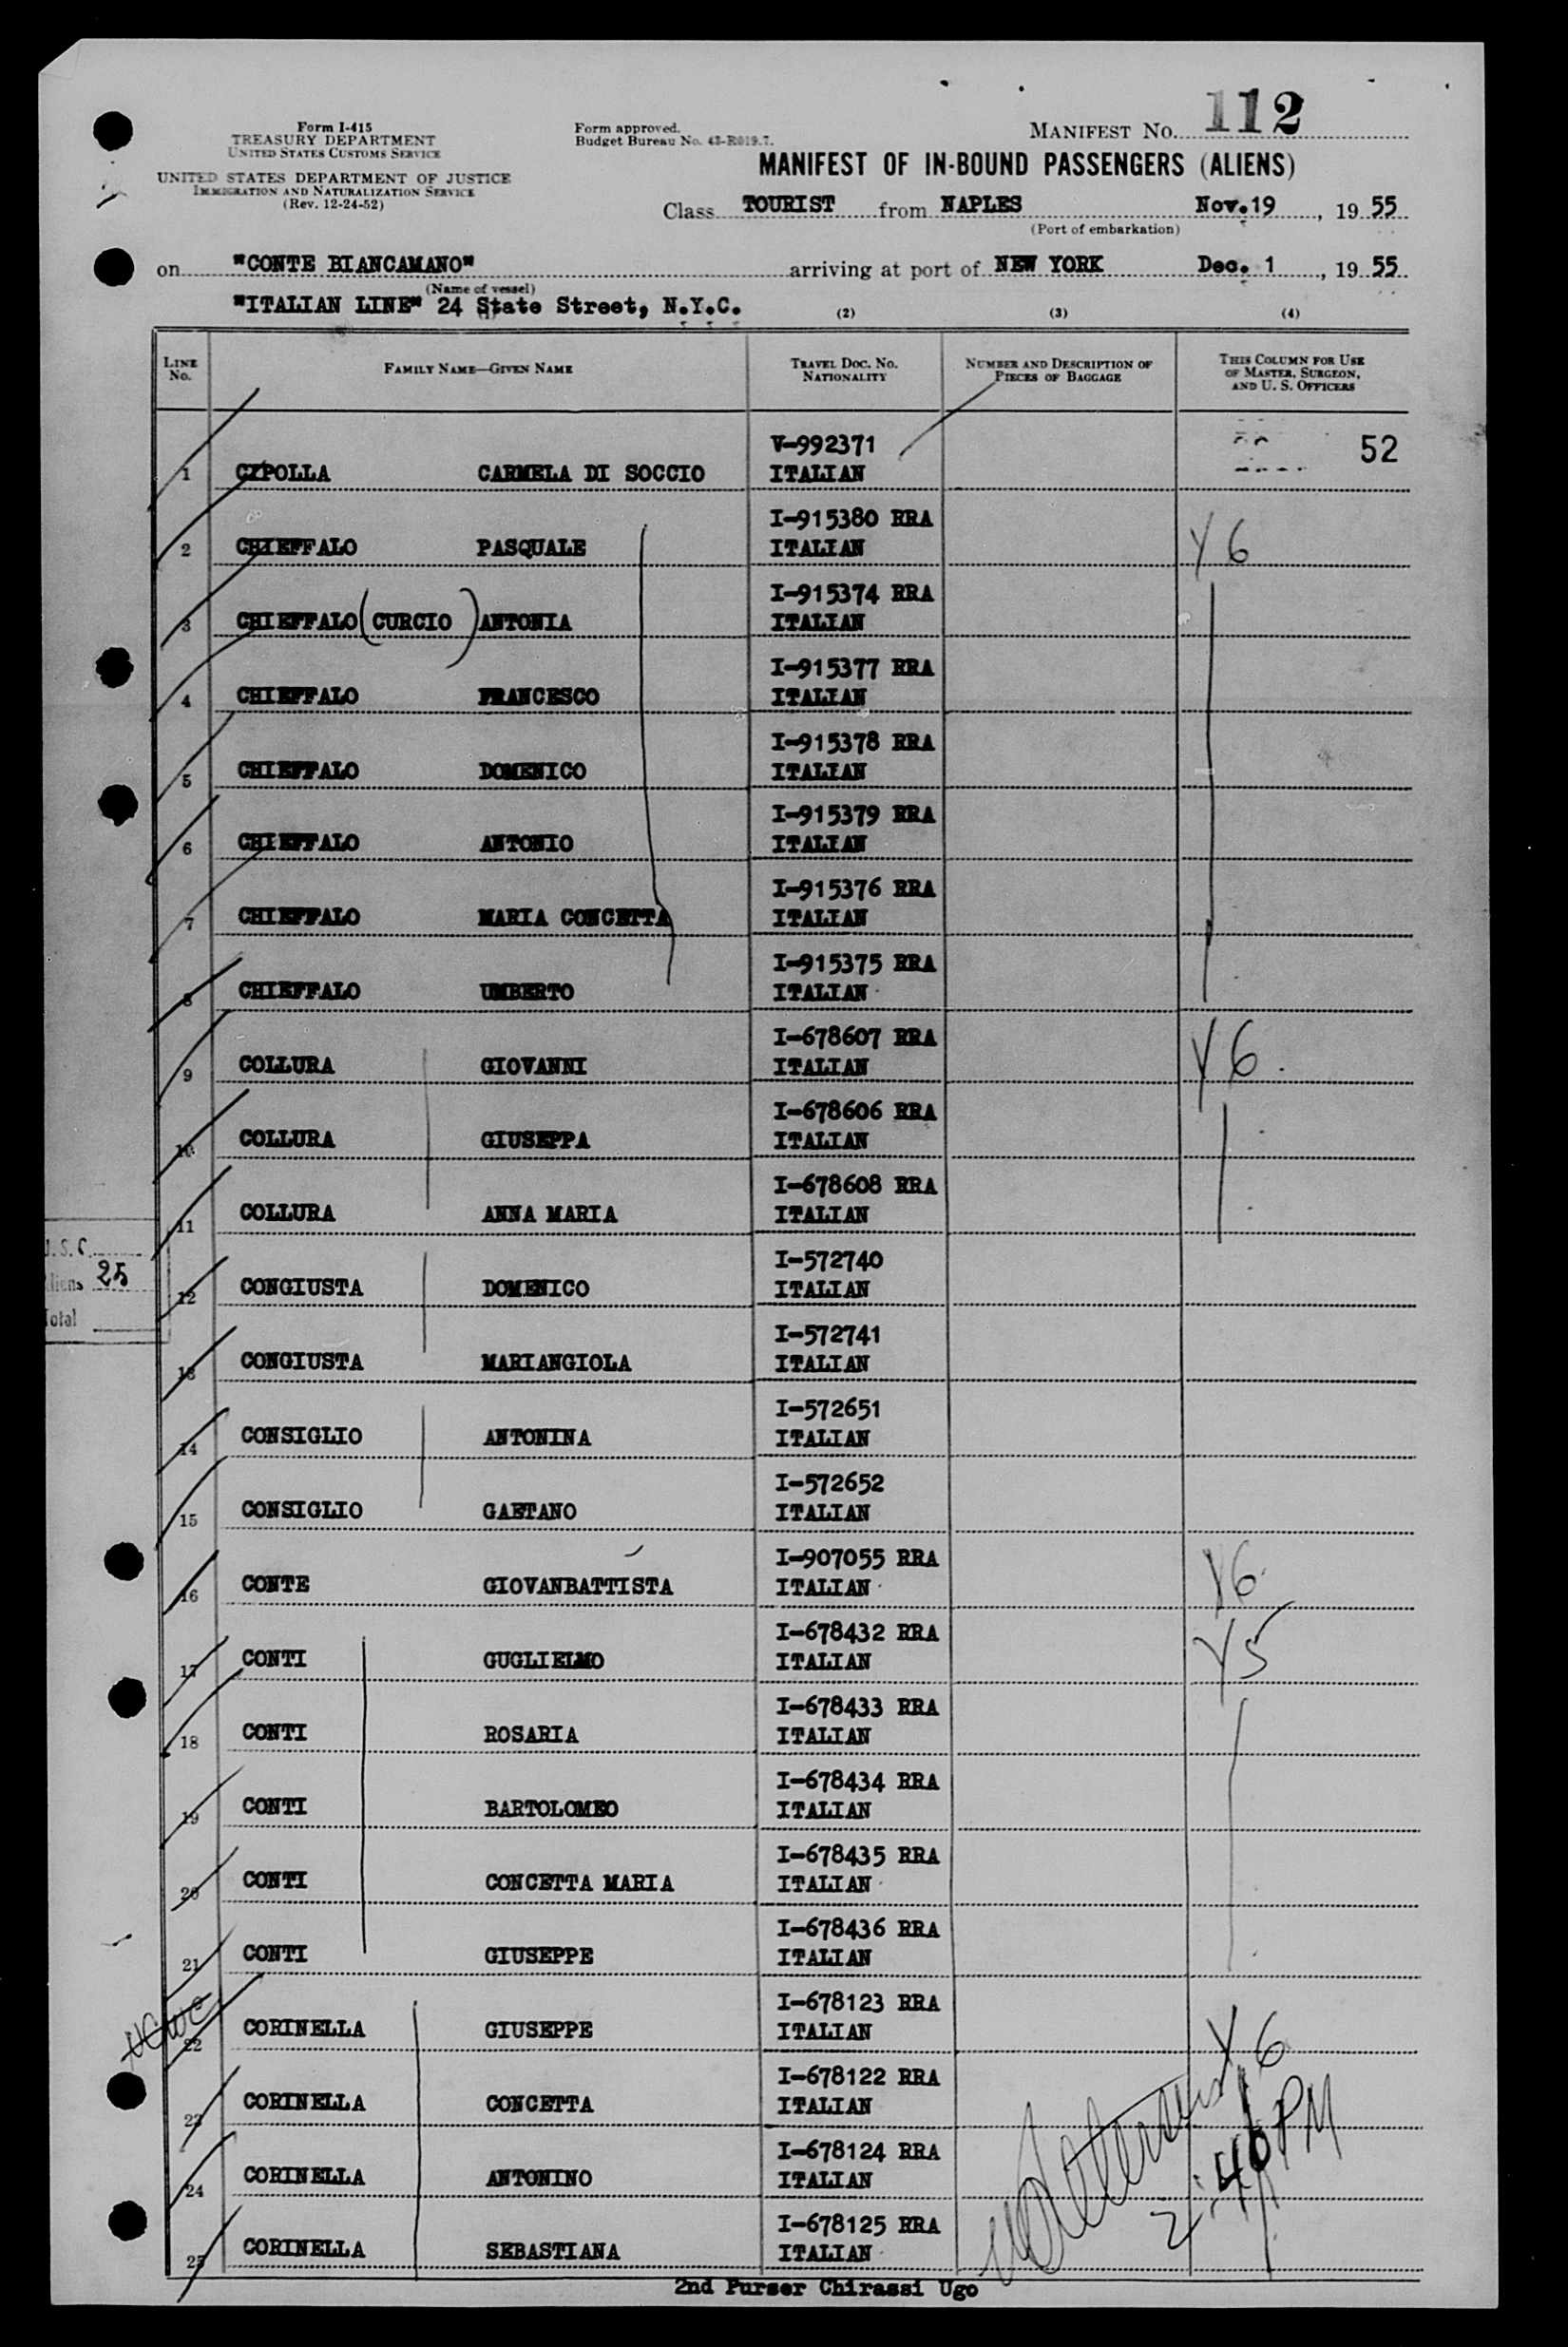 Form I-415
TREASURY DEPARTMENT
UNITED STATES CUSTOMS SERVICE
UNITED STATES DEPARTMENT OF JUSTICE
IMMIGRATION AND NATURALIZATION SERVICE
(Rev. 12-24-52)
Form approved.
Budget Bureau No. 43-R019.7.
MANIFEST NO. 112
MANIFEST OF IN-BOUND PASSENGERS (ALIENS)
Class TOURIST from NAPLES Nov.19, 1955
(Port of embarkation)
on "CONTE BIANCAMANO" arriving at port of NEW YORK Dec. 1, 1955
(Name of vessel)
"ITALIAN LINE" 24 State Street, N.Y.C. (2) (3) (4)
LINE No. FAMILY NAME—GIVEN NAME TRAVEL DOC. NO. NATIONALITY NUMBER AND DESCRIPTION OF PIECES OF BAGGAGE THIS COLUMN FOR USE OF MASTER, SURGEON, AND U. S. OFFICERS
V-992371 52
1 CIPOLLA CARMELA DI SOCCIO ITALIAN
I-915380 RRA
2 CHIEFFALO PASQUALE ITALIAN Y6
I-915374 RRA
3 CHIEFFALO (CURCIO) ANTONIA ITALIAN
I-915377 RRA
4 CHIEFFALO FRANCESCO ITALIAN
I-915378 RRA
5 CHIEFFALO DOMENICO ITALIAN
I-915379 RRA
6 CHIEFFALO ANTONIO ITALIAN
I-915376 RRA
7 CHIEFFALO MARIA CONCETTA ITALIAN
I-915375 RRA
8 CHIEFFALO UMBERTO ITALIAN
I-678607 RRA
9 COLLURA GIOVANNI ITALIAN Y6
I-678606 RRA
10 COLLURA GIUSEPPA ITALIAN
I-678608 RRA
11 COLLURA ANNA MARIA ITALIAN
U.S.C.
Aliens 25
Total
I-572740
12 CONGIUSTA DOMENICO ITALIAN
I-572741
13 CONGIUSTA MARIANGIOLA ITALIAN
I-572651
14 CONSIGLIO ANTONINA ITALIAN
I-572652
15 CONSIGLIO GAETANO ITALIAN
I-907055 RRA
16 CONTE GIOVANBATTISTA ITALIAN Y6
I-678432 RRA
17 CONTI GUGLIELMO ITALIAN Y5
I-678433 RRA
18 CONTI ROSARIA ITALIAN
I-678434 RRA
19 CONTI BARTOLOMEO ITALIAN
I-678435 RRA
20 CONTI CONCETTA MARIA ITALIAN
I-678436 RRA
21 CONTI GIUSEPPE ITALIAN
NCWC
I-678123 RRA
22 CORINELLA GIUSEPPE ITALIAN Y6
I-678122 RRA
23 CORINELLA CONCETTA ITALIAN
I-678124 RRA
24 CORINELLA ANTONINO ITALIAN 2:40 PM
I-678125 RRA
25 CORINELLA SEBASTIANA ITALIAN
2nd Purser Chirassi Ugo